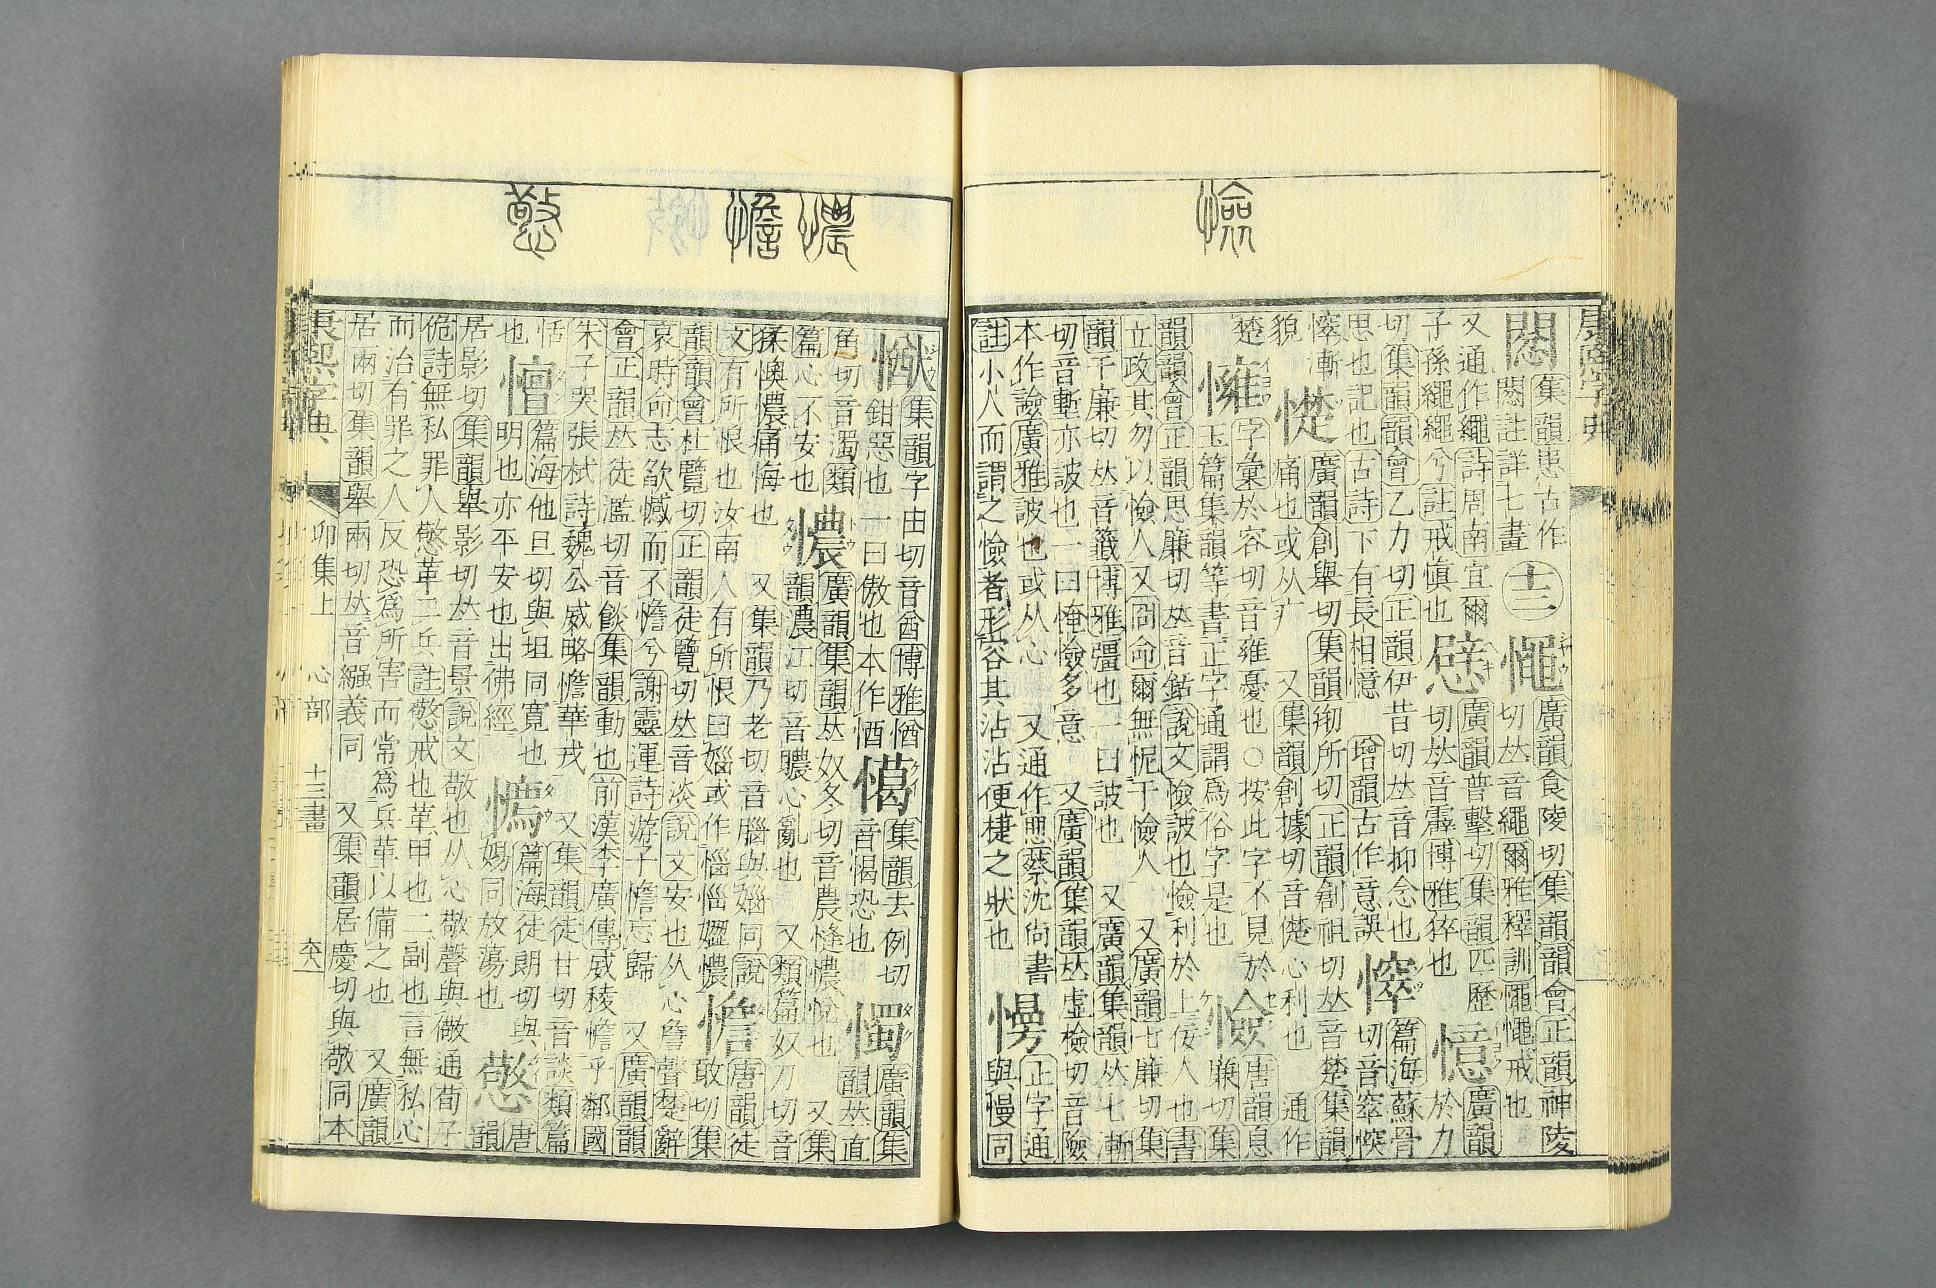 憸
康熙字典
集韻患古作
註詳七畫
十三
憴
廣韻食陵切集韻韻會正韻神陵
切𠀤音繩爾雅釋訓憴憴戒也
又通作繩詩周南宜爾
子孫繩繩兮註戒愼也
憵
廣韻普擊切集韻匹歷
切𠀤音霹博雅猝也
憶
廣韻
於力
切集韻韻會乙力切正韻伊昔切𠀤音抑念也
思也記也古詩下有長相憶 增韻古作意誤
篇海蘇骨
切音窣
漸心
貌
憷
廣韻創舉切集韻𠛅所切正韻創祖切𠀤音楚集韻
痛也或从疒 又集韻創據切音楚心利也 通作
楚
㦷
字彙於容切音雍憂也○按此字不見於
玉篇集韻等書正字通謂爲俗字是也
憸
唐韻息
廉切集
韻韻會正韻思廉切𠀤音銛說文憸詖也憸利於上佞人也書
立政其勿以憸人又冏命爾無怩于憸人 又廣韻七廉切集
韻千廉切𠀤音籤博雅彊也一曰詖也 又廣韻集韻𠀤七漸
切音塹亦詖也一曰憸多意 又廣韻集韻𠀤虛檢切音險
本作譣廣雅詖也或从心 又通作思蔡沈尙書
註小人而謂之憸者形容其沾沾便捷之狀也
㦔
正字通
與慢同
憹
憺
憼
猷
集韻字由切音酋博雅㥢
鉗惡也一曰傲也本作㥢
愒
集韻去例切
音愒恐也
憪
廣韻集
韻𠀤直
角切音濁類
篇心不安也
憹
廣韻集韻𠀤奴冬切音農㦀憹悅也 又集
韻濃江切音聽心亂也 又類篇奴刀切音
猱懊憹痛悔也 又集韻乃老切音腦與㛴同說
文有所恨也汝南人有所恨曰㛴或作惱憹
憺
唐韻徒
敢切集
韻韻會杜覽切正韻徒覽切𠀤音淡說文安也从心詹聲楚辭
哀時命志欿憾而不憺兮謝靈運詩游子憺忘歸 又廣韻韻
會正韻𠀤徒濫切音餤集韻動也前漢李廣傳威稜憺乎鄰國
朱子哭張栻詩魏公威略憺華戎 又集韻徒甘切音談類篇
恬
也
憻
篇海他旦切與坦同寬也
明也亦平安也出佛經
篇海徒朗切與
婸同放蕩也
憼
唐
韻
居影切集韻舉影切𠀤音景說文敬也从心敬聲與儆通荀子
佹詩無私罪人憼革二兵註憼戒也革甲也二副也言無私心
而治有罪之人反恐爲所害而常爲兵革以備之也 又廣韻
居兩切集韻舉兩切𠀤音繦義同 又集韻居慶切與敬同本
康熙字典
卯集上 心部 十三畫